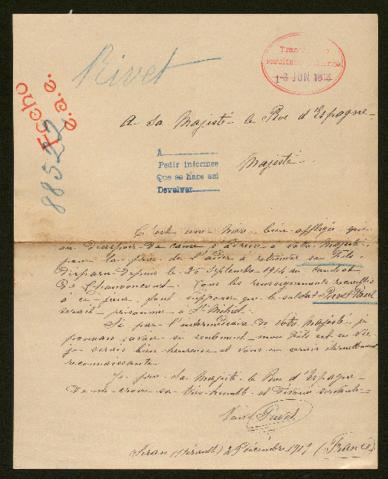 Rivet
Ficho
e.a.e.
8852
13 JUN 1918
A Sa Majesté le Roi d'Espagne
A
Pedir informes
Que se hace así
Devolver
Majesté
C'est une mère bien affligée qui
au désespoir de cause s'adresse à votre Majesté
pour la prier de l'aider à retrouver son fils
disparu depuis le 25 Septembre 1914 au combat
de Chauvoncourt. Tous les renseignements recueillis
à ce jour font supposer que le soldat Rivet
serait prisonnier à St Mihiel.
Si par l'intermédiaire de votre Majesté je
pouvais savoir si seulement mon fils est en vie
je serais bien heureuse et vous en serais éternellement
reconnaissante.
Je prie Sa Majesté le Roi d'Espagne
de me croire sa très humble et dévouée servante
Rivet
Siran (Hérault) Décembre 1917 (France)